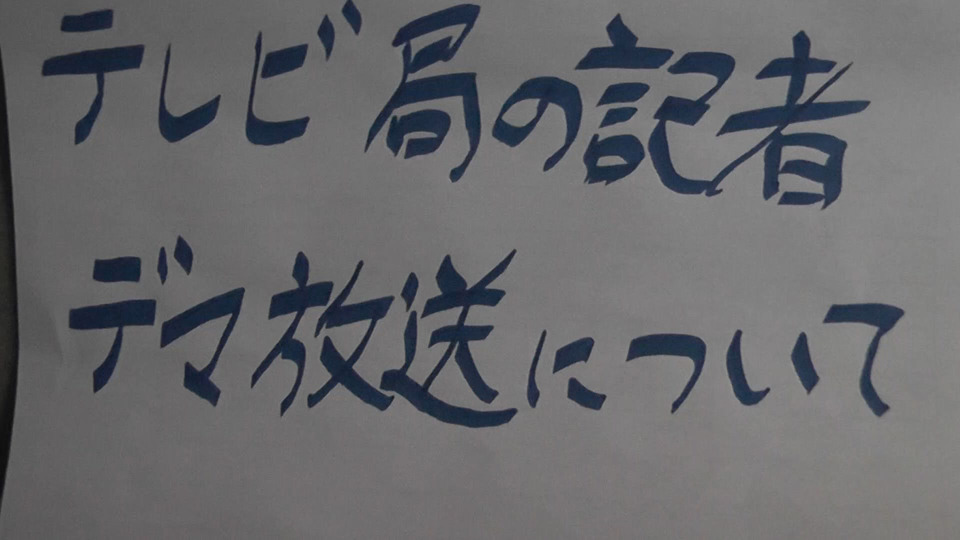 テレビ局の記者
デマ放送について